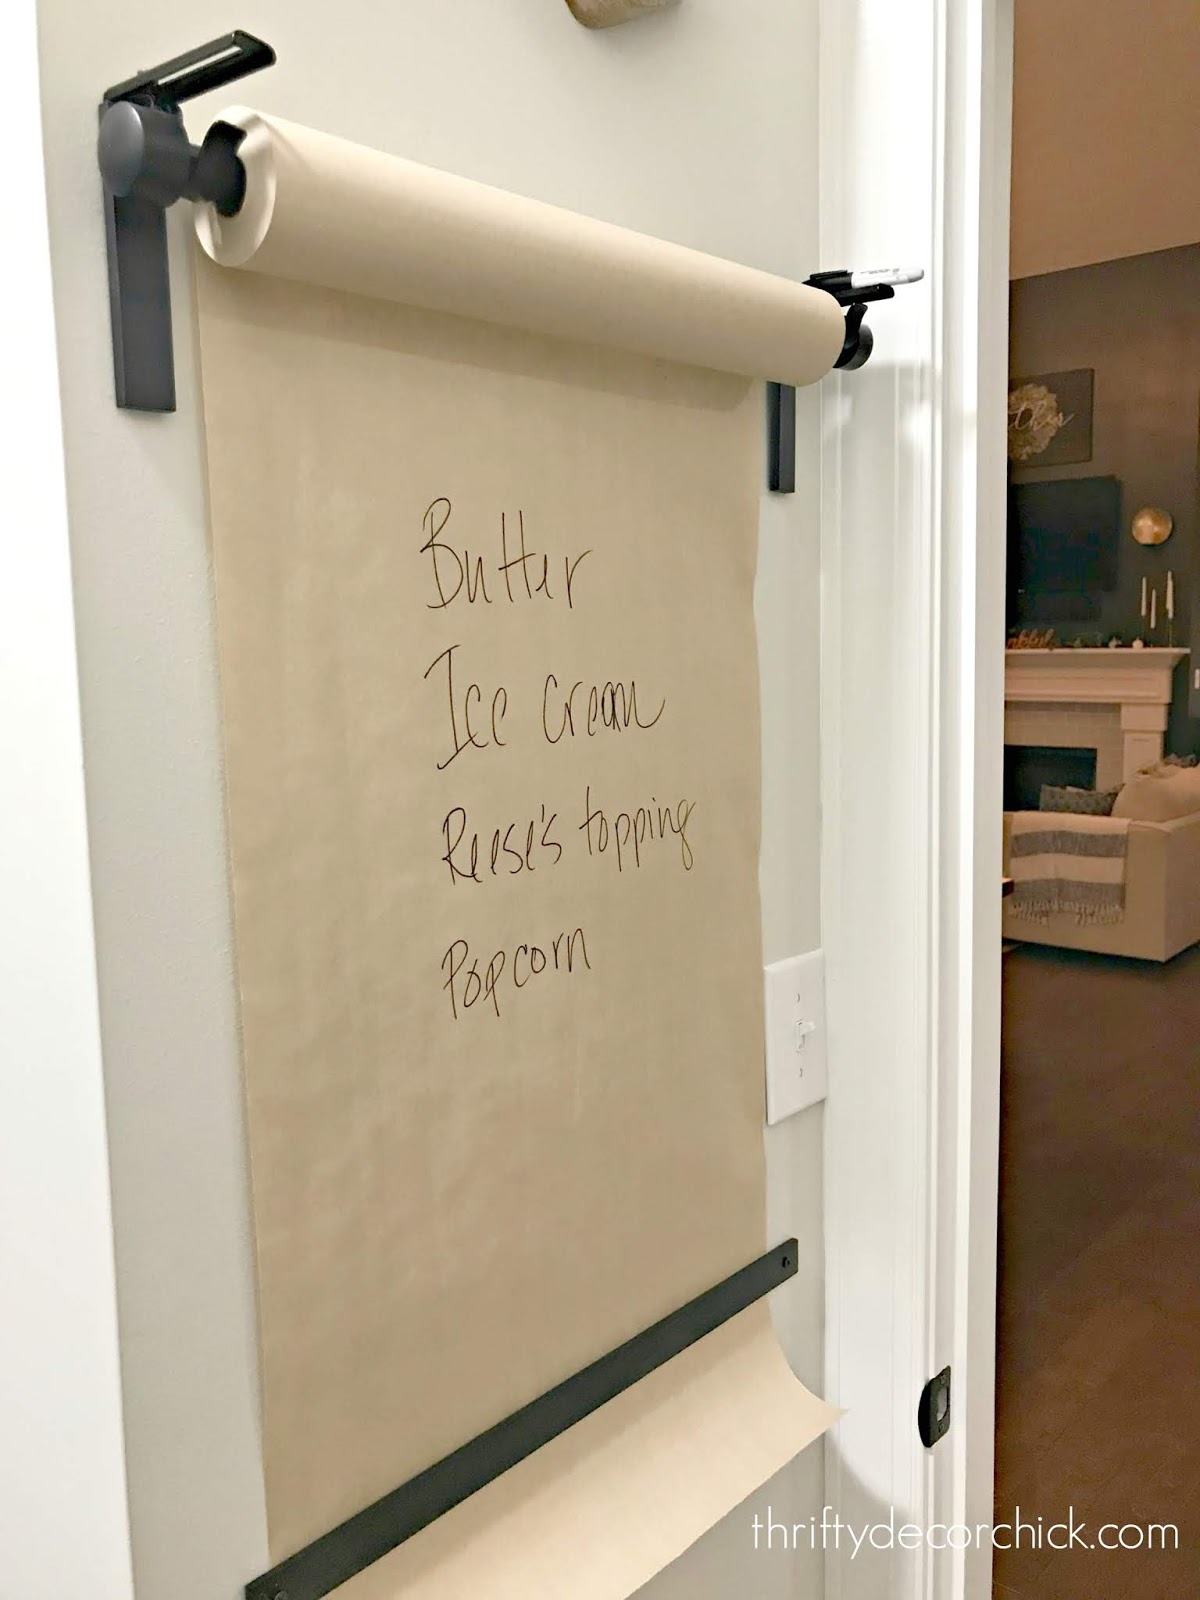 Butter
Ice cream
Reese's topping
Popcorn
thriftydecorchick.com